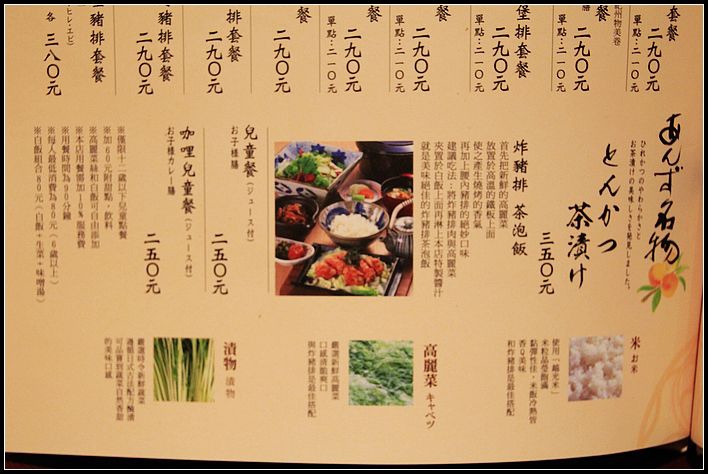 套餐
單點：二一〇元
二九〇元
餐
二九〇元
堡排套餐
單點：二一〇元
二九〇元
餐
單點：二一〇元
二九〇元
餐
單點：二一〇元
二九〇元
餐
單點：二一〇元
二九〇元
餐
二九〇元
排套餐
二九〇元
豬排套餐
二九〇元
豬排套餐
各 三八〇元
あんず名物
ひれかつのやわらかさと
お茶漬けの美味しさを発見しました。
とんかつ
茶漬け
三五〇元
炸豬排 茶泡飯
首先把新鮮的高麗菜
放置於高溫的鐵板上面
使之產生燒烤的香氣
再加上腰內豬排的絕妙口味
建議吃法：將炸豬排肉與高麗菜
夾置於白飯上面再淋上本店特製醬汁
就是美味絕佳的炸豬排茶泡飯
兒童餐（ジュース付）
お子様膳
二五〇元
咖哩兒童餐（ジュース付）
お子様カレー膳
二五〇元
※僅限十二歲以下兒童點餐
※加60元附甜點，飲料
※高麗菜絲和白飯可自由添加
※本店用餐需加10%服務費
※用餐時間為90分鐘
※每人最低消費為80元（6歲以上）
※白飯組合80元（白飯＋生菜＋味噌湯）
米 お米
使用「越光米」
米粒晶瑩飽滿
黏彈性佳，米飯冷熱皆
香Q美味
和炸豬排是最佳搭配
高麗菜 キャベツ
嚴選新鮮高麗菜
口感清脆爽口
與炸豬排是最佳搭配
漬物 漬物
嚴選時令新鮮蔬菜
遵循日式古法配方醃漬
可品嘗到蔬菜自然香甜
的美味口感